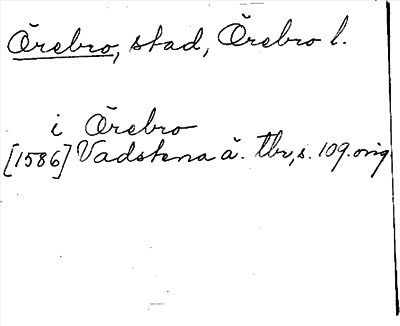 Örebro, stad, Örebro l.
i Örebro
[1586] Vadstena ä. tbr, s. 109. orig